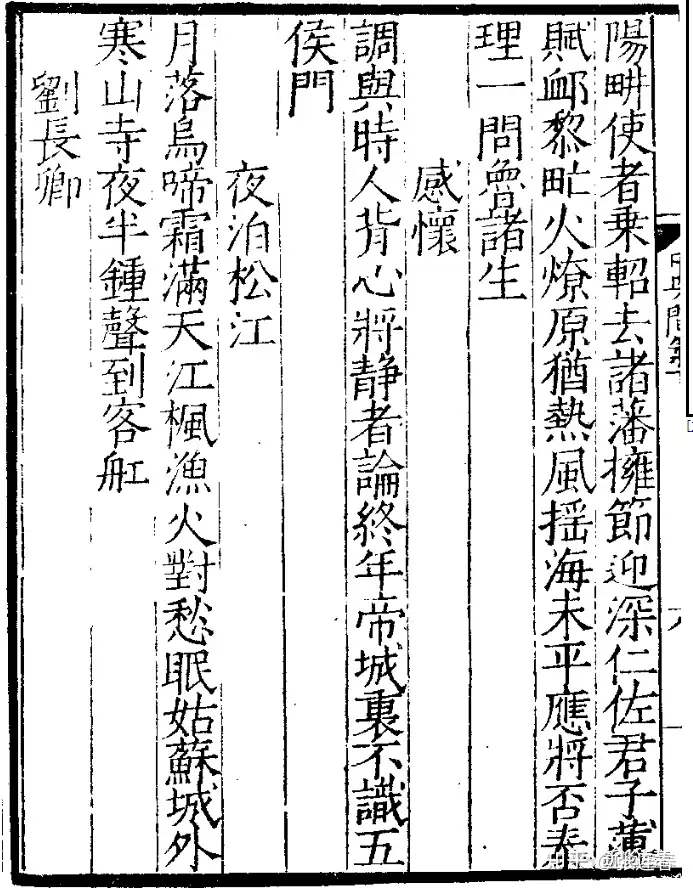 陽畊使者乗軺去諸藩擁節迎深仁佐君子薄
賦卹黎甿火燎原猶熱風揺海未平應將否泰
理一問魯諸生
感懷
調與時人背心將静者論終年帝城裏不識五
侯門
夜泊松江
月落烏啼霜滿天江楓漁火對愁眠姑蘇城外
寒山寺夜半鍾聲到客舡
劉長卿